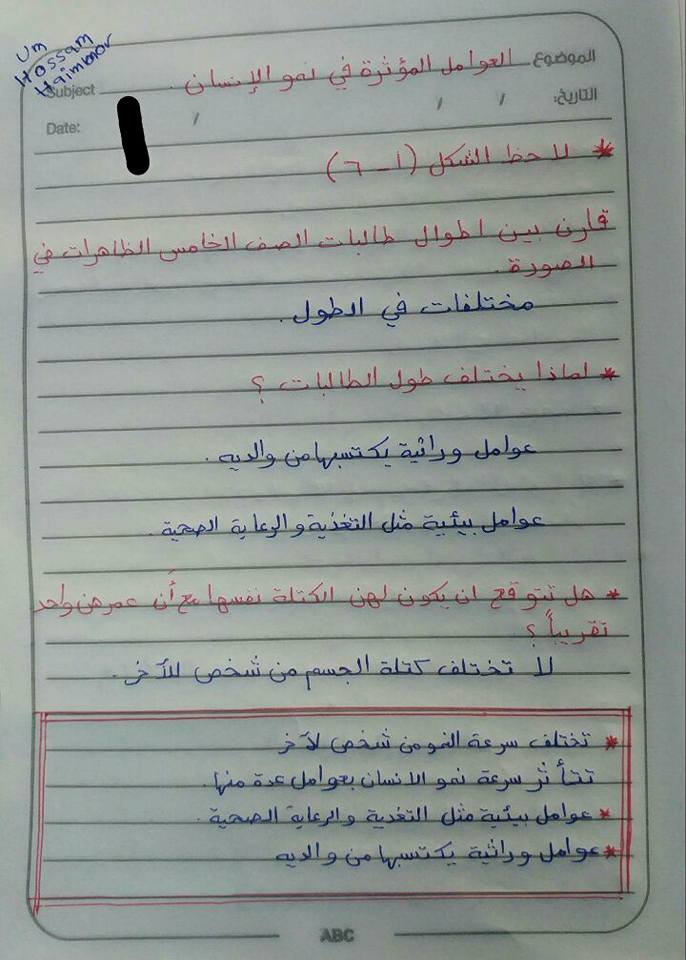 Um
Hossam
Haimmor
الموضوع العوامل المؤثرة في نمو الإنسان .
Subject
التاريخ: / /
Date: /
* لاحظ الشكل (١-٦)
قارن بين اطوال طالبات الصف الخامس الظاهرات في
الصورة .
مختلفات في الطول .
* لماذا يختلف طول الطالبات ؟
عوامل وراثية يكتسبها من والديه .
عوامل بيئية مثل التغذية والرعاية الصحية .
* هل تتوقع ان يكون لهن الكتلة نفسها مع أن عمرهن واحد
تقريباً ؟
لا تختلف كتلة الجسم من شخص للآخر .
* تختلف سرعة النمو من شخص لآخر
تتأثر سرعة نمو الانسان بعوامل عدة منها .
* عوامل بيئية مثل التغدية والرعاية الصحية .
* عوامل وراثية يكتسبها من والديه
ABC